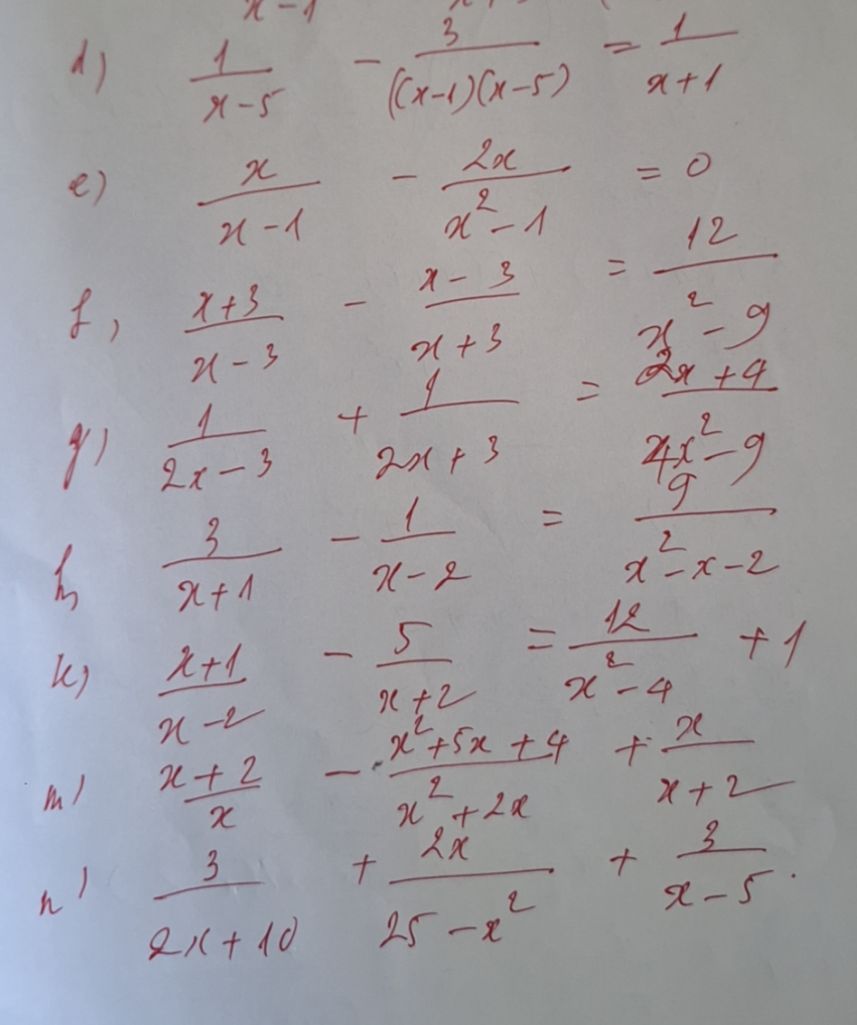 x-1
d) 1/(x-5) - 3/((x-1)(x-5) = 1/(x+1)
e) x/(x-1) - 2x/(x²-1) = 0
f, (x+3)/(x-3) - (x-3)/(x+3) = 12/(x²-9)
g) 1/(2x-3) + 1/(2x+3) = (2x+4)/(4x²-9)
h, 3/(x+1) - 1/(x-2) = 9/(x²-x-2)
k) (x+1)/(x-2) - 5/(x+2) = 12/(x²-4) + 1
m) (x+2)/x - (x²+5x+4)/(x²+2x) + x/(x+2)
n) 3/(2x+10) + 2x/(25-x²) + 3/(x-5).